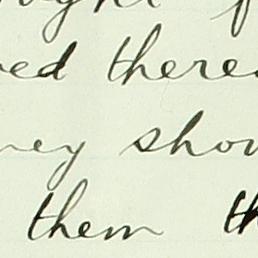 ought f
ved there
ney show
them th